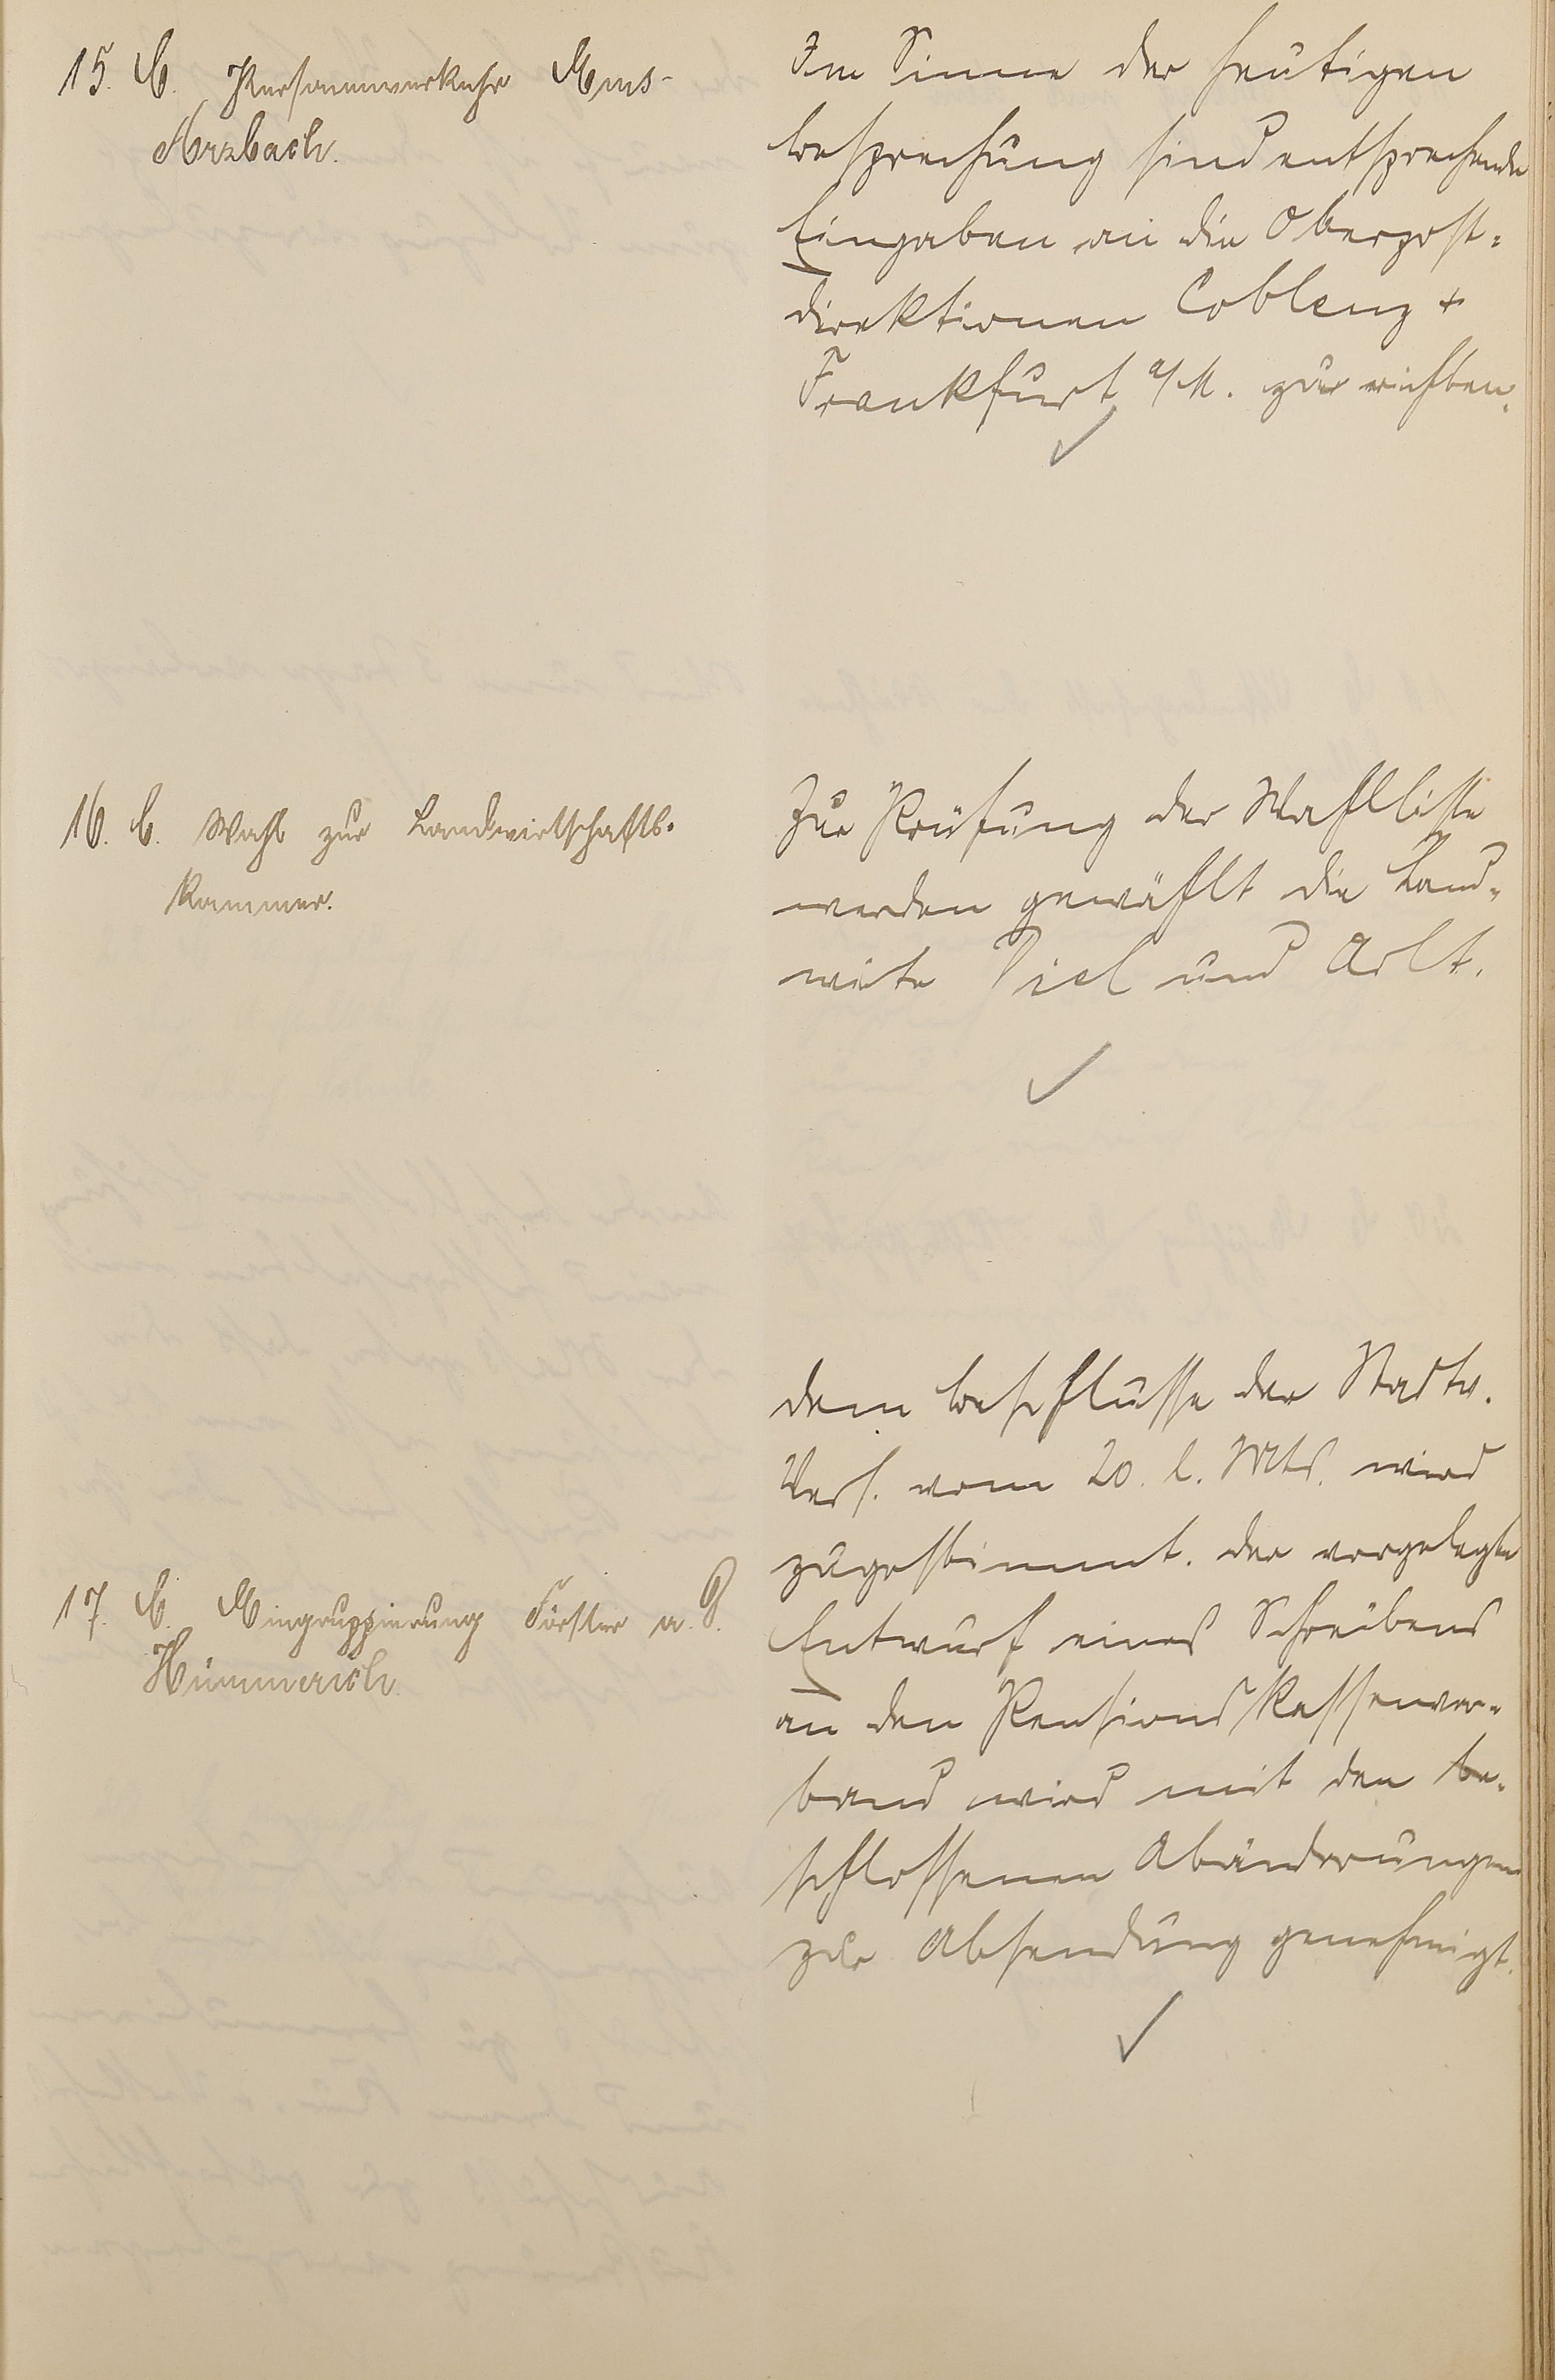 15. C. Personenverkehr Ems-
Arzbach.
Im Sinne der heutigen
Besprechung sind entsprechende
Eingaben an die Oberpost-
direktionen Coblenz +
Frankfurt a/M. zu richten.
16. C. Wahl zur Landwirtschafts-
kammer.
Zur Prüfung der Wahlliste
werden gewählt die Land-
wirte Piel und Arlt.
17. C. Eingruppierung Förster a. D.
Hümmerich
Dem Beschlusse der Stadtv.
Vers. vom 20. l. Mts. wird
zugestimmt. Der vorgelegte
Entwurf eines Schreibens
an den Pensionskassenver-
band wird mit den be-
schlossenen Abänderungen
zur Absendung genehmigt.